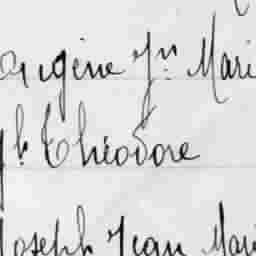 origène Jn Mari
Jh Théodore
Joseph Jean Mari